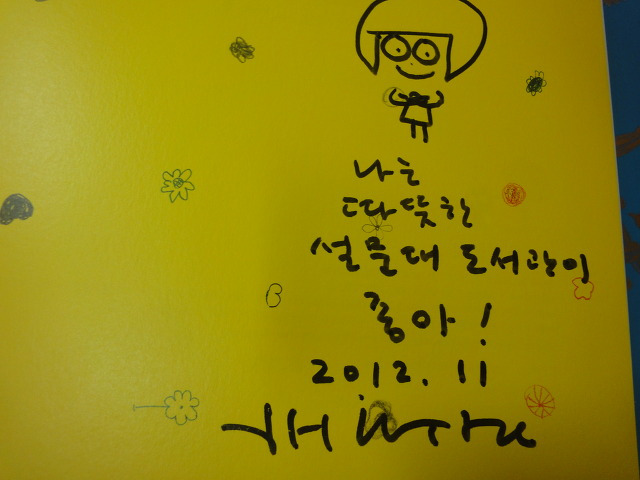 나는
따뜻한
설문대 도서관이
좋아!
2012. 11